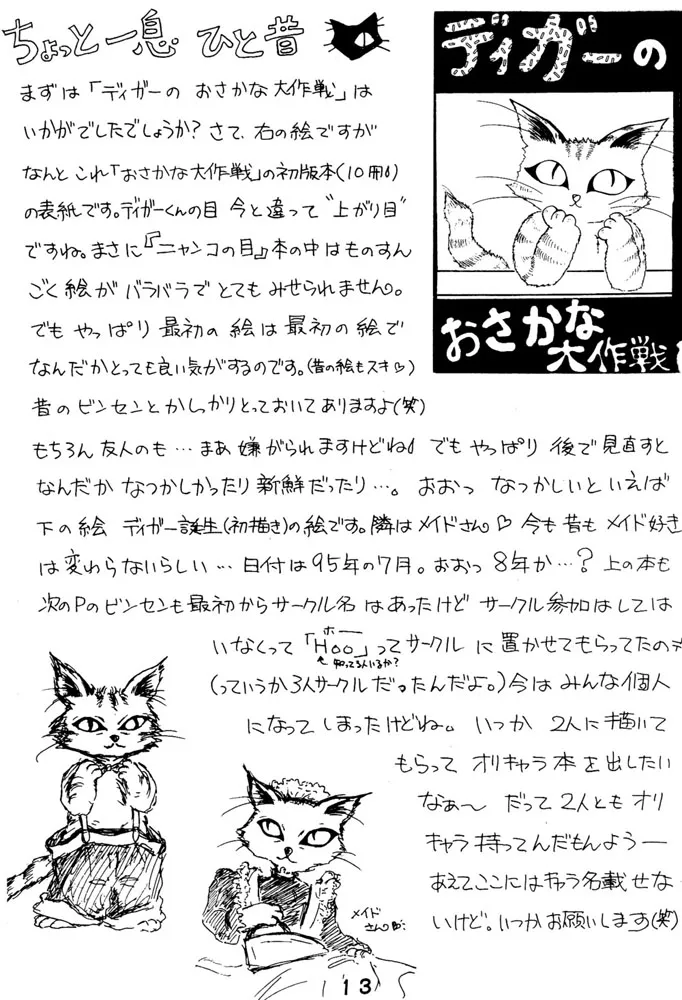 ちょっと一息 ひと昔
まずは「ディガーの おさかな大作戦」は
いかがでしたでしょうか? さて、右の絵ですが
なんと これ「おさかな大作戦」の初版本(10冊!)
の表紙です。ディガーくんの目 今と違って“上がり目”
ですね。まさに『ニャンコの目』本の中はものすん
ごく絵が バラバラで とても みせられません。
でも やっぱり 最初の 絵は 最初の 絵で
なんだかとっても良い気がするのです。(昔の絵もスキ♡)
昔のビンセンとかしっかりとっておいてありますよ(笑)
もちろん 友人のも…まあ 嫌がられますけどね! でも やっぱり 後で 見直すと
なんだか なつかしかったり 新鮮だったり…。 おおっ なつかしいといえば
下の絵 ディガー誕生(初描き)の絵です。隣はメイドさん♡ 今も昔も メイド好き
は変わらないらしい… 日付は95年の7月。おおっ 8年か…? 上の本も
次のPのビンセンも最初からサークル名 はあったけど サークル参加はしては
いなくって「Hoo」ってサークル に置かせてもらってたの
ホー
↑知ってる人いるか?
(っていうか3人サークルだったんだよ。)今は みんな個人
になって しまったけどね。 いつか 2人に描いて
もらって オリキャラ本を出したい
なぁ〜 だって 2人とも オリ
キャラ 持ってんだもんよう ー
あえてここにはキャラ名載せな
いけど。いつかお願いします(笑)
ディガーの
おさかな
大作戦
メイド
さん
13